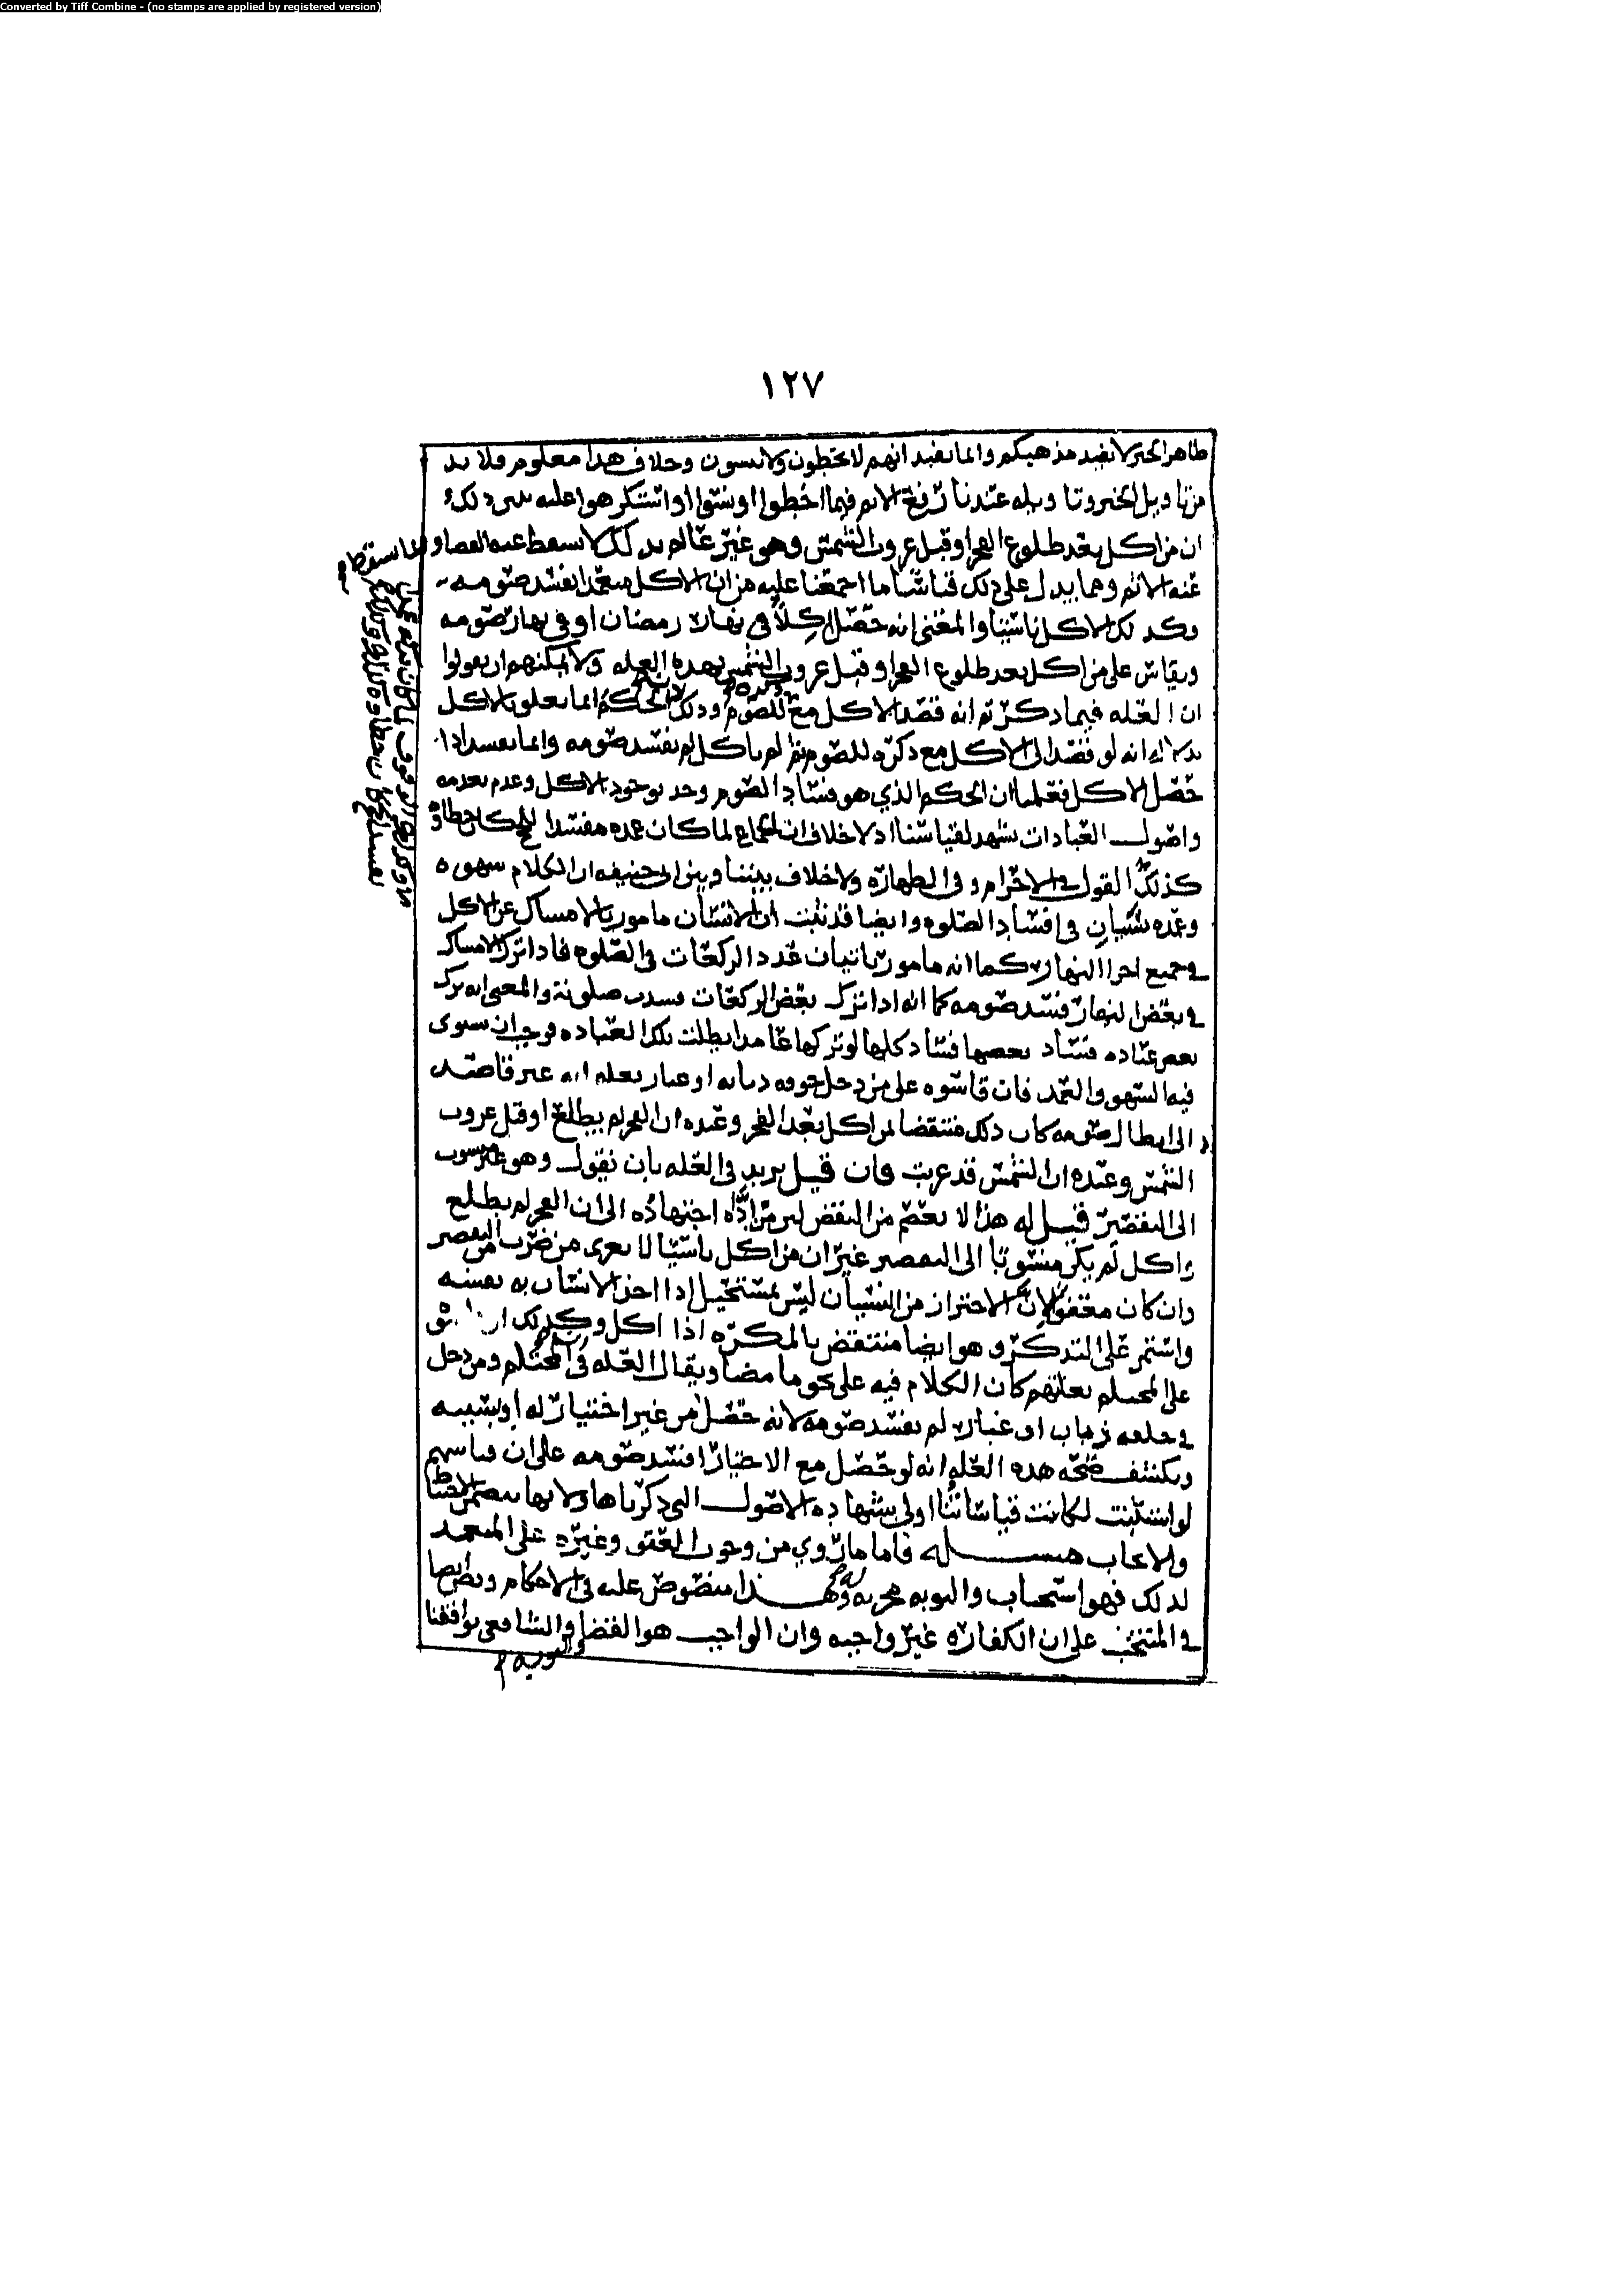 Converted by Tiff Combine - (no stamps are applied by registered version)
١٢٧
ظاهر الخبر لا يفيد مذهبكم وانما يفيد انهم لا يخطون ولا ينسون وخلاف هذا معلوم فلا بد
من تاويل الخبر وتاويله عندنا رفع الاثم فيما اخطوا او نسوا او استكرهوا عليه يبين ذلك
ان من اكل بعد طلوع الفجر او قبل غروب الشمس وهو غير عالم بذلك لا يسقط عنه القضا وانما سقط
عنه الاثم ومما يدل على ذلك قياسنا ما اجمعنا عليه من ان الاكل متعمدا يفسد صومه
وكذلك الاكل ناسيا والمعنى انه حصل اكلا في نهار رمضان او في نهار صومه
ويقاس على من اكل بعد طلوع الفجر او قبل غروب الشمس بهذه العله ولا يمكنهم ان يقولوا
ان العله فيما ذكرتم انه قصد الاكل مع ذكره للصوم وذلك لان الحكم انما يعلق بالاكل
بدلاله انه لو قصد الى الاكل مع ذكره للصوم ثم لم ياكل لم يفسد صومه وانما يفسد اذا
حصل الاكل فعلمنا ان الحكم الذي هو فساد الصوم وجد بوجود الاكل وعدم بعدمه
واصول العبادات تشهد لقياسنا اذ لا خلاف ان الجماع لما كان عمده مفسدا للحج كان خطاوه
كذلك القول في الاحرام وفي الطهاره ولا خلاف بيننا وبين ابي حنيفه ان الكلام سهوه
وعمده سيان في افساد الصلوه وايضا قد ثبت ان الانسان مامور بالامساك عن الاكل
في جميع اجزا النهار كما انه مامور باتيان عدد الركعات في الصلوه فاذا ترك الامساك
في بعض النهار فسد صومه كما انه اذا ترك بعض الركعات فسدت صلوته والمعنى انه ترك
بعض عباده فساد بعضها فساد كلها لو تركها عامدا بطلت تلك العباده فوجب ان يستوى
فيه السهو والعمد فان قاسوه على من دخل جوفه ذبابه او غبار بعله انه غير قاصد
الى ابطال صومه كان ذلك منتقضا بمن اكل بعد الفجر وعنده ان الفجر لم يطلع او قبل غروب
الشمس وعنده ان الشمس قد غربت فان قيل يزيد في العله بان نقول وهو غير منسوب
الى التقصير قيل له هذا لا يعصم من النقض لان من اداه اجتهاده الى ان الفجر لم يطلع
واكل لم يكن منسوبا الى التقصير غير ان من اكل ناسيا لا يعرى من ضرب من التقصير
وان كان معفوا لان الاحتراز من النسيان ليس بمستحيل اذا اخذ الانسان به نفسه
واستمر على التذكر وهو ايضا منتقض بالمكره اذا اكل وكذلك ان
على المحتلم بعلتهم كان الكلام فيه على نحو ما مضا ويقال العله في المحتلم ومن دخل
في حلقه ذباب او غبار لم يفسد صومه لانه حصل من غير اختيار له او بسببه
ويكشف صحه هذه العله انه لو حصل مع الاختيار افسد صومه على ان قياسهم
لو استتبت لكانت قياساتنا اولى بشهاده الاصول التي ذكرناها ولانها تتضمن الاحتياط
والايجاب مسله فاما ما روي من وجوب العتق وغيره على المتعمد
لذلك فهو استحباب والتوبه مجزيه له وهذا منصوص عليه في الاحكام ونص ايضا
في المنتخب على ان الكفاره غير واجبه وان الواجب هو القضا والتوبه والشافعي يوافقنا